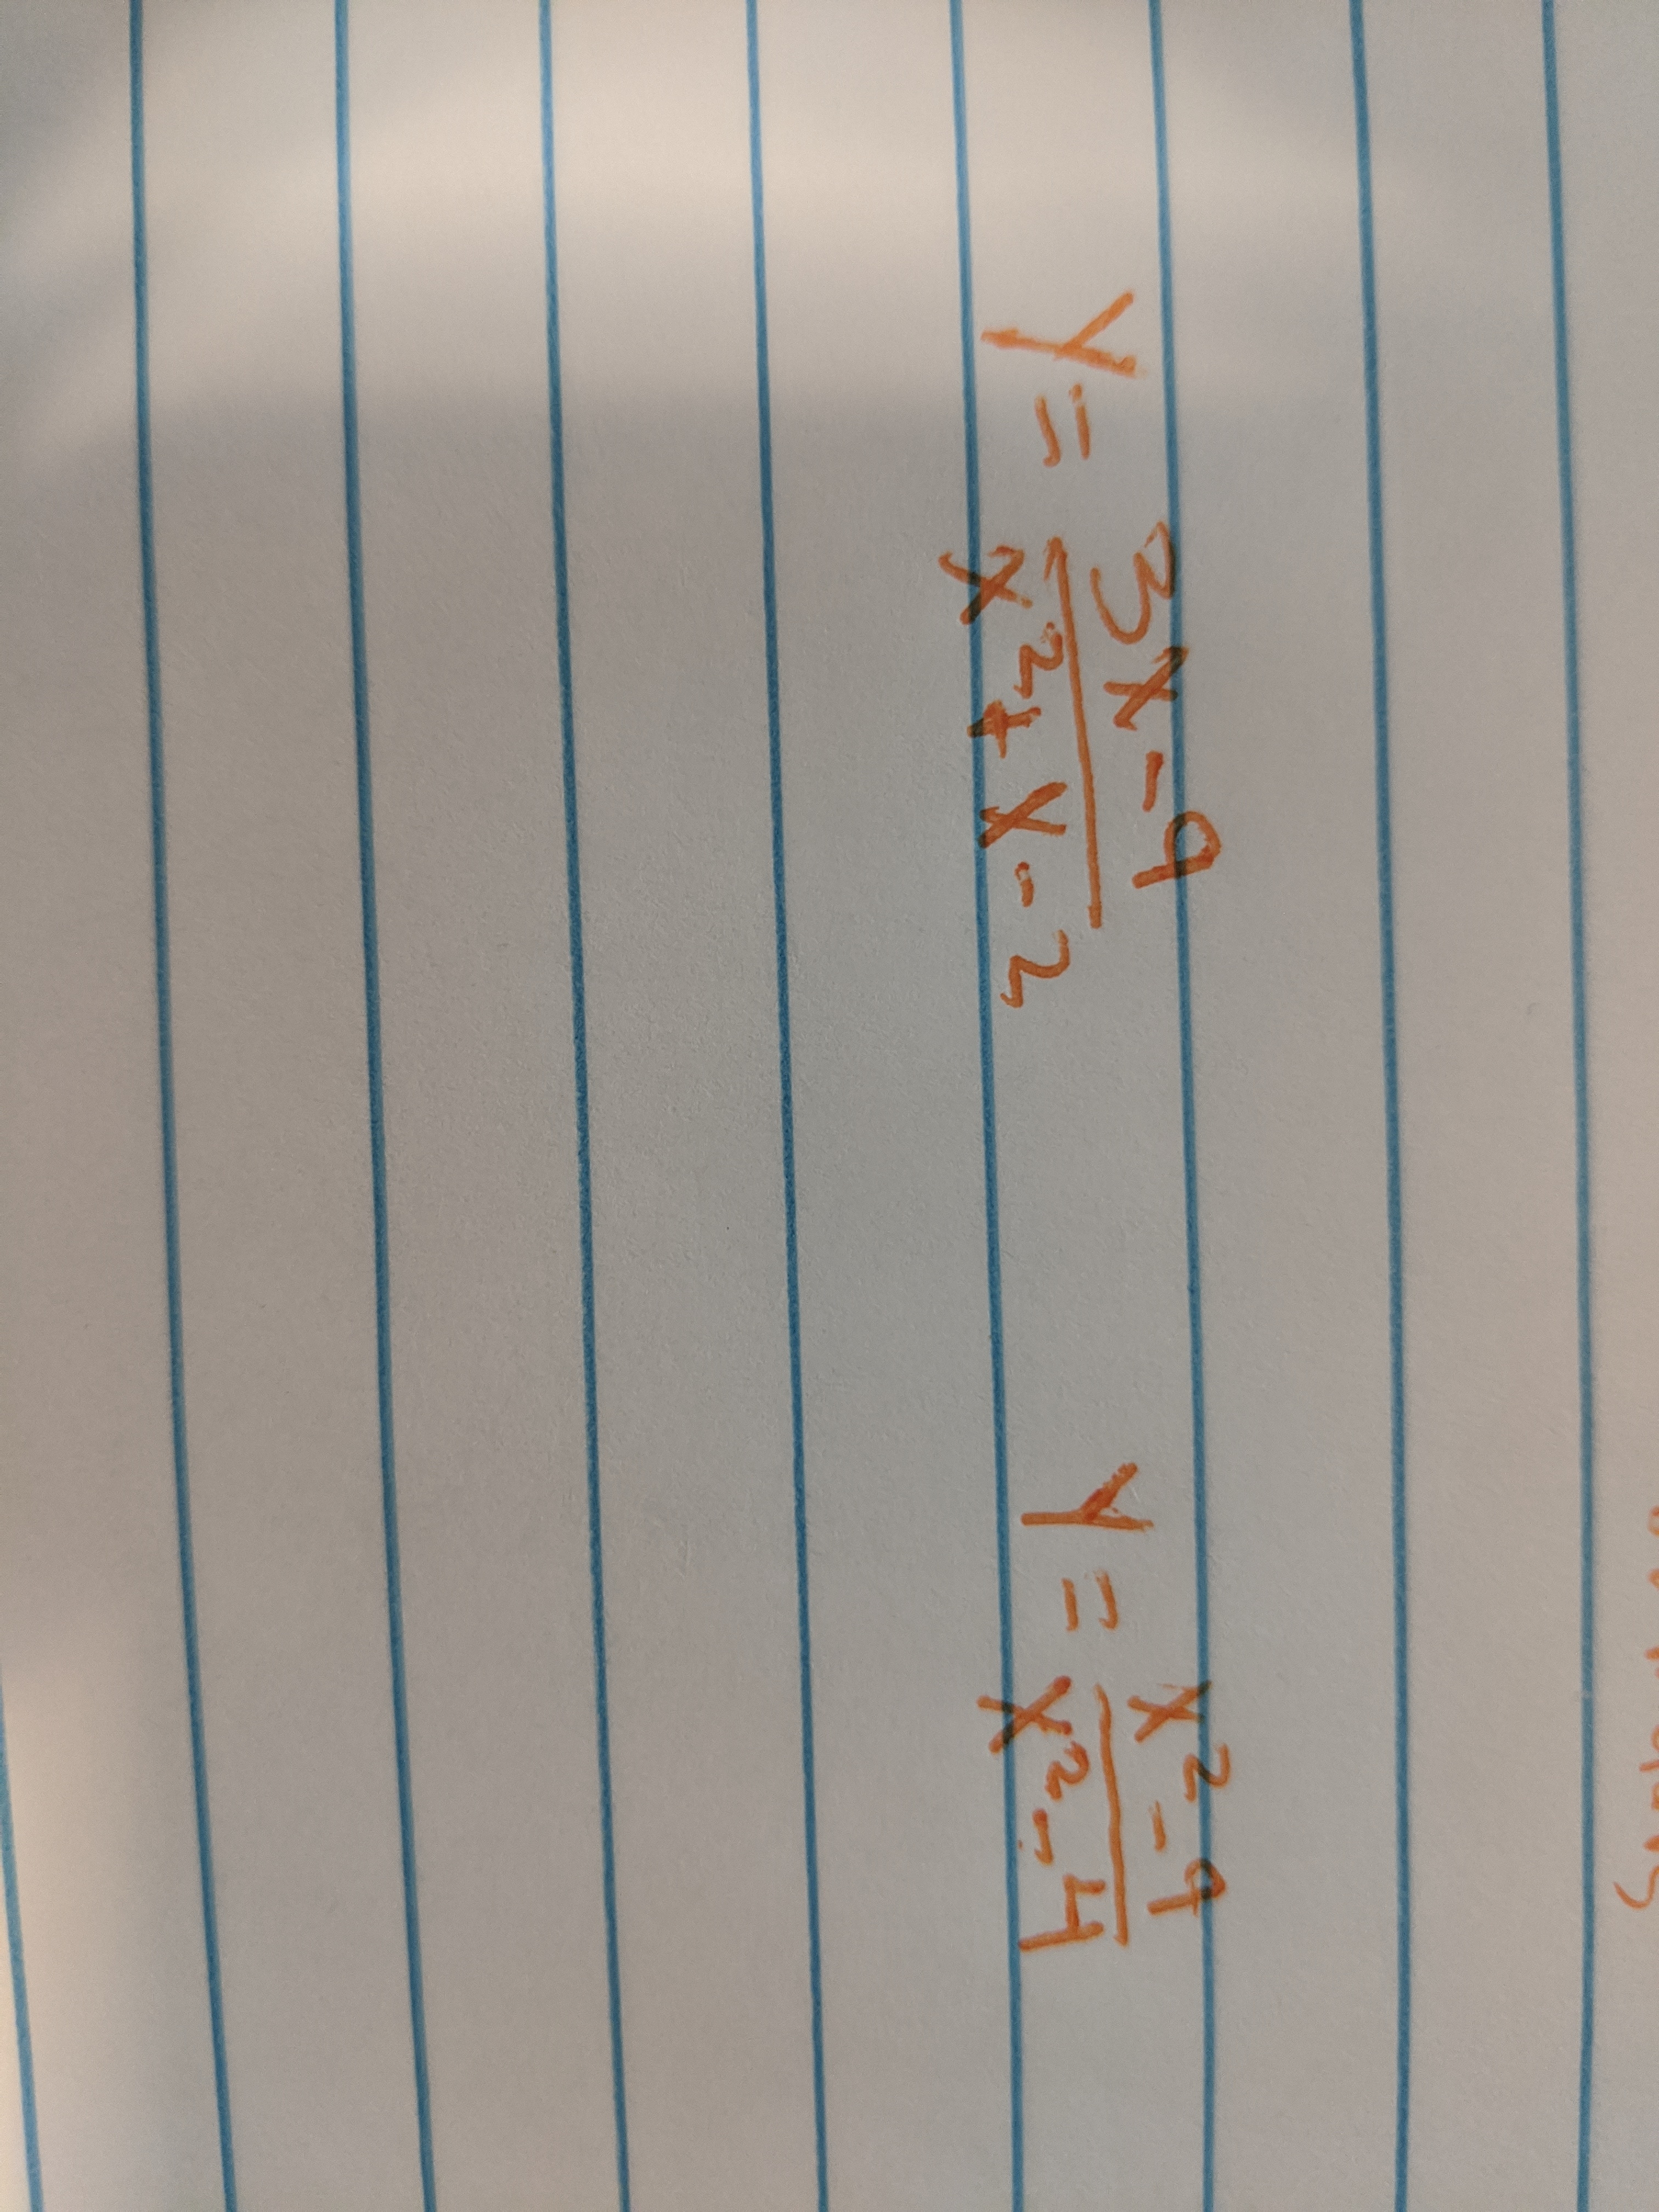 y = 3x - 9 / x² + x - 2
y = x² - 9 / x² - 4